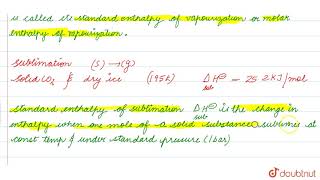 is called its standard enthalpy of vapourization or molar
enthalpy of vapourization.
Sublimation (s) → (g)
Solid CO₂ & dry ice (195K) ΔsubH⊖ = 25.2 kJ/mol
standard enthalpy of sublimation ΔsubH⊖ is the change in
enthalpy when one mole of a solid substance sublimes at
const temp & under standard pressure (1 bar)
doubtnut